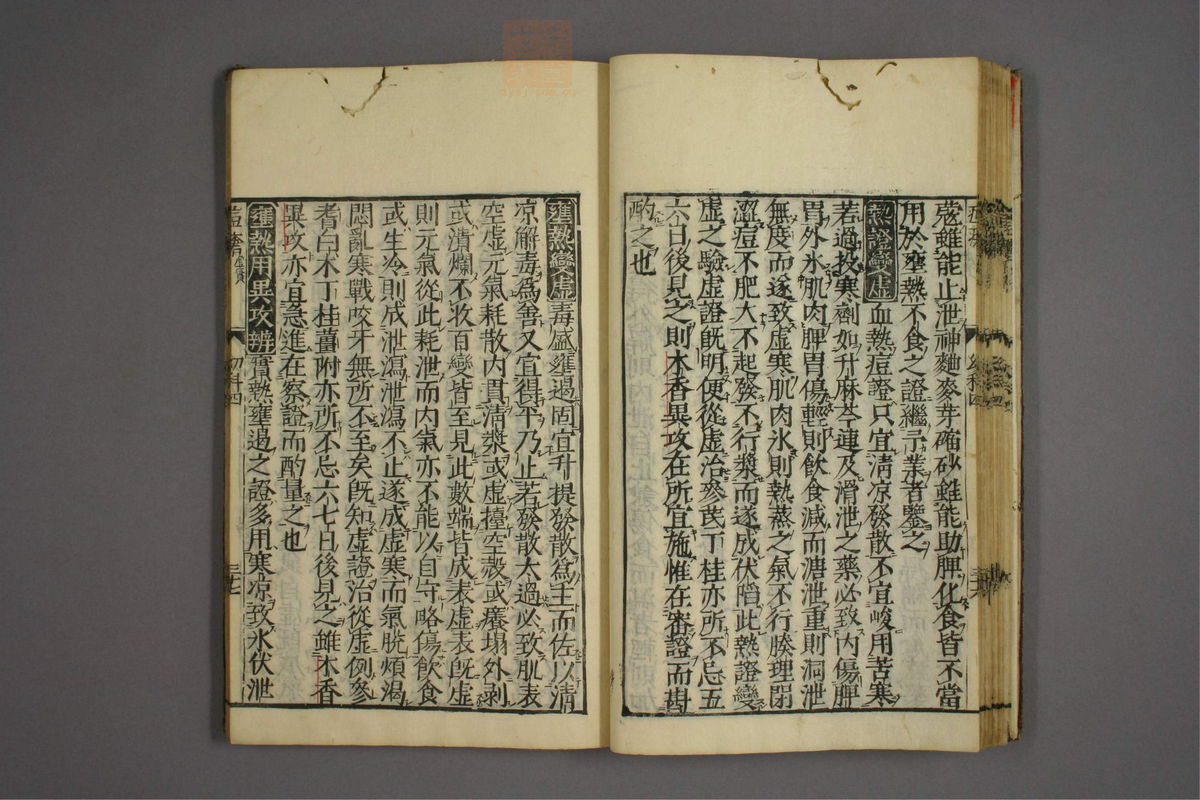 蔻雖能止泄神麯麥芽硇砂雖能助脾化食皆不當
用於壅熱不食之證繼吾業者鑒之
熱證變虛 血熱痘證只宜清凉發散不宜峻用苦寒
若過投寒劑如升麻芩連及滑泄之藥必致内傷脾
胃外氷肌肉脾胃傷輕則飲食减而溏泄重則洞泄
無度而遂致虛寒肌肉氷則熱蒸之氣不行腠理閉
澀痘不肥大不起發不行漿而遂成伏䧟此熱證變
虛之驗虛證既明便從虛治參芪丁桂亦所不忌五
六日後見之則木香異攻在所宜施惟在審證而斟
酌之也
壅熱變虛 毒盛壅遏固宜升提發散爲主而佐以清
凉解毒爲善又宜得平乃止若發散太過必致肌表
空虛元氣耗散内貫清漿或虛擡空殻或癢塌外剥
或潰爛不收百變皆至見此數端皆成表虛表既虛
則元氣從此耗泄而内氣亦不能以自守略傷飲食
或生冷則成泄瀉泄瀉不止遂成虛寒而氣脱煩渴
悶亂寒戰咬牙無所不至矣既知虛證治從虛例參
耆白木丁桂薑附亦所不忌六七日後見之雖木香
異攻亦宜急進在察證而酌量之也
壅熱用異攻辨 實熱壅遏之證多用寒凉致氷伏泄
幼科四
三十七